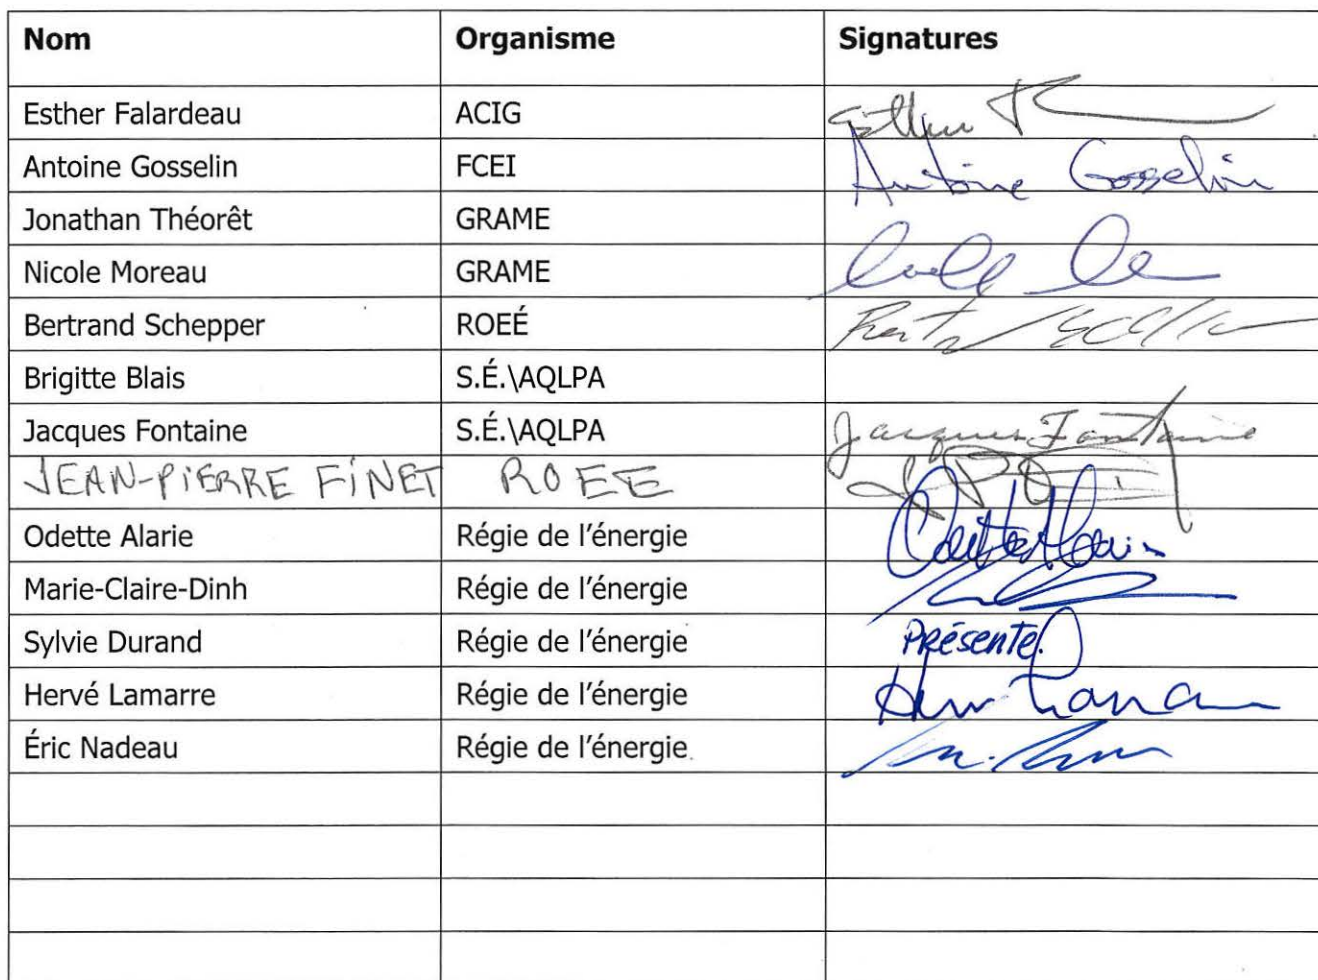 Nom Organisme Signatures
Esther Falardeau ACIG
Antoine Gosselin FCEI Antoine Gosselin
Jonathan Théorêt GRAME
Nicole Moreau GRAME
Bertrand Schepper ROEÉ
Brigitte Blais S.É.\AQLPA
Jacques Fontaine S.É.\AQLPA Jacques Fontaine
JEAN-PIERRE FINET ROEE
Odette Alarie Régie de l'énergie Odette Alarie
Marie-Claire-Dinh Régie de l'énergie
Sylvie Durand Régie de l'énergie Présente.
Hervé Lamarre Régie de l'énergie
Éric Nadeau Régie de l'énergie